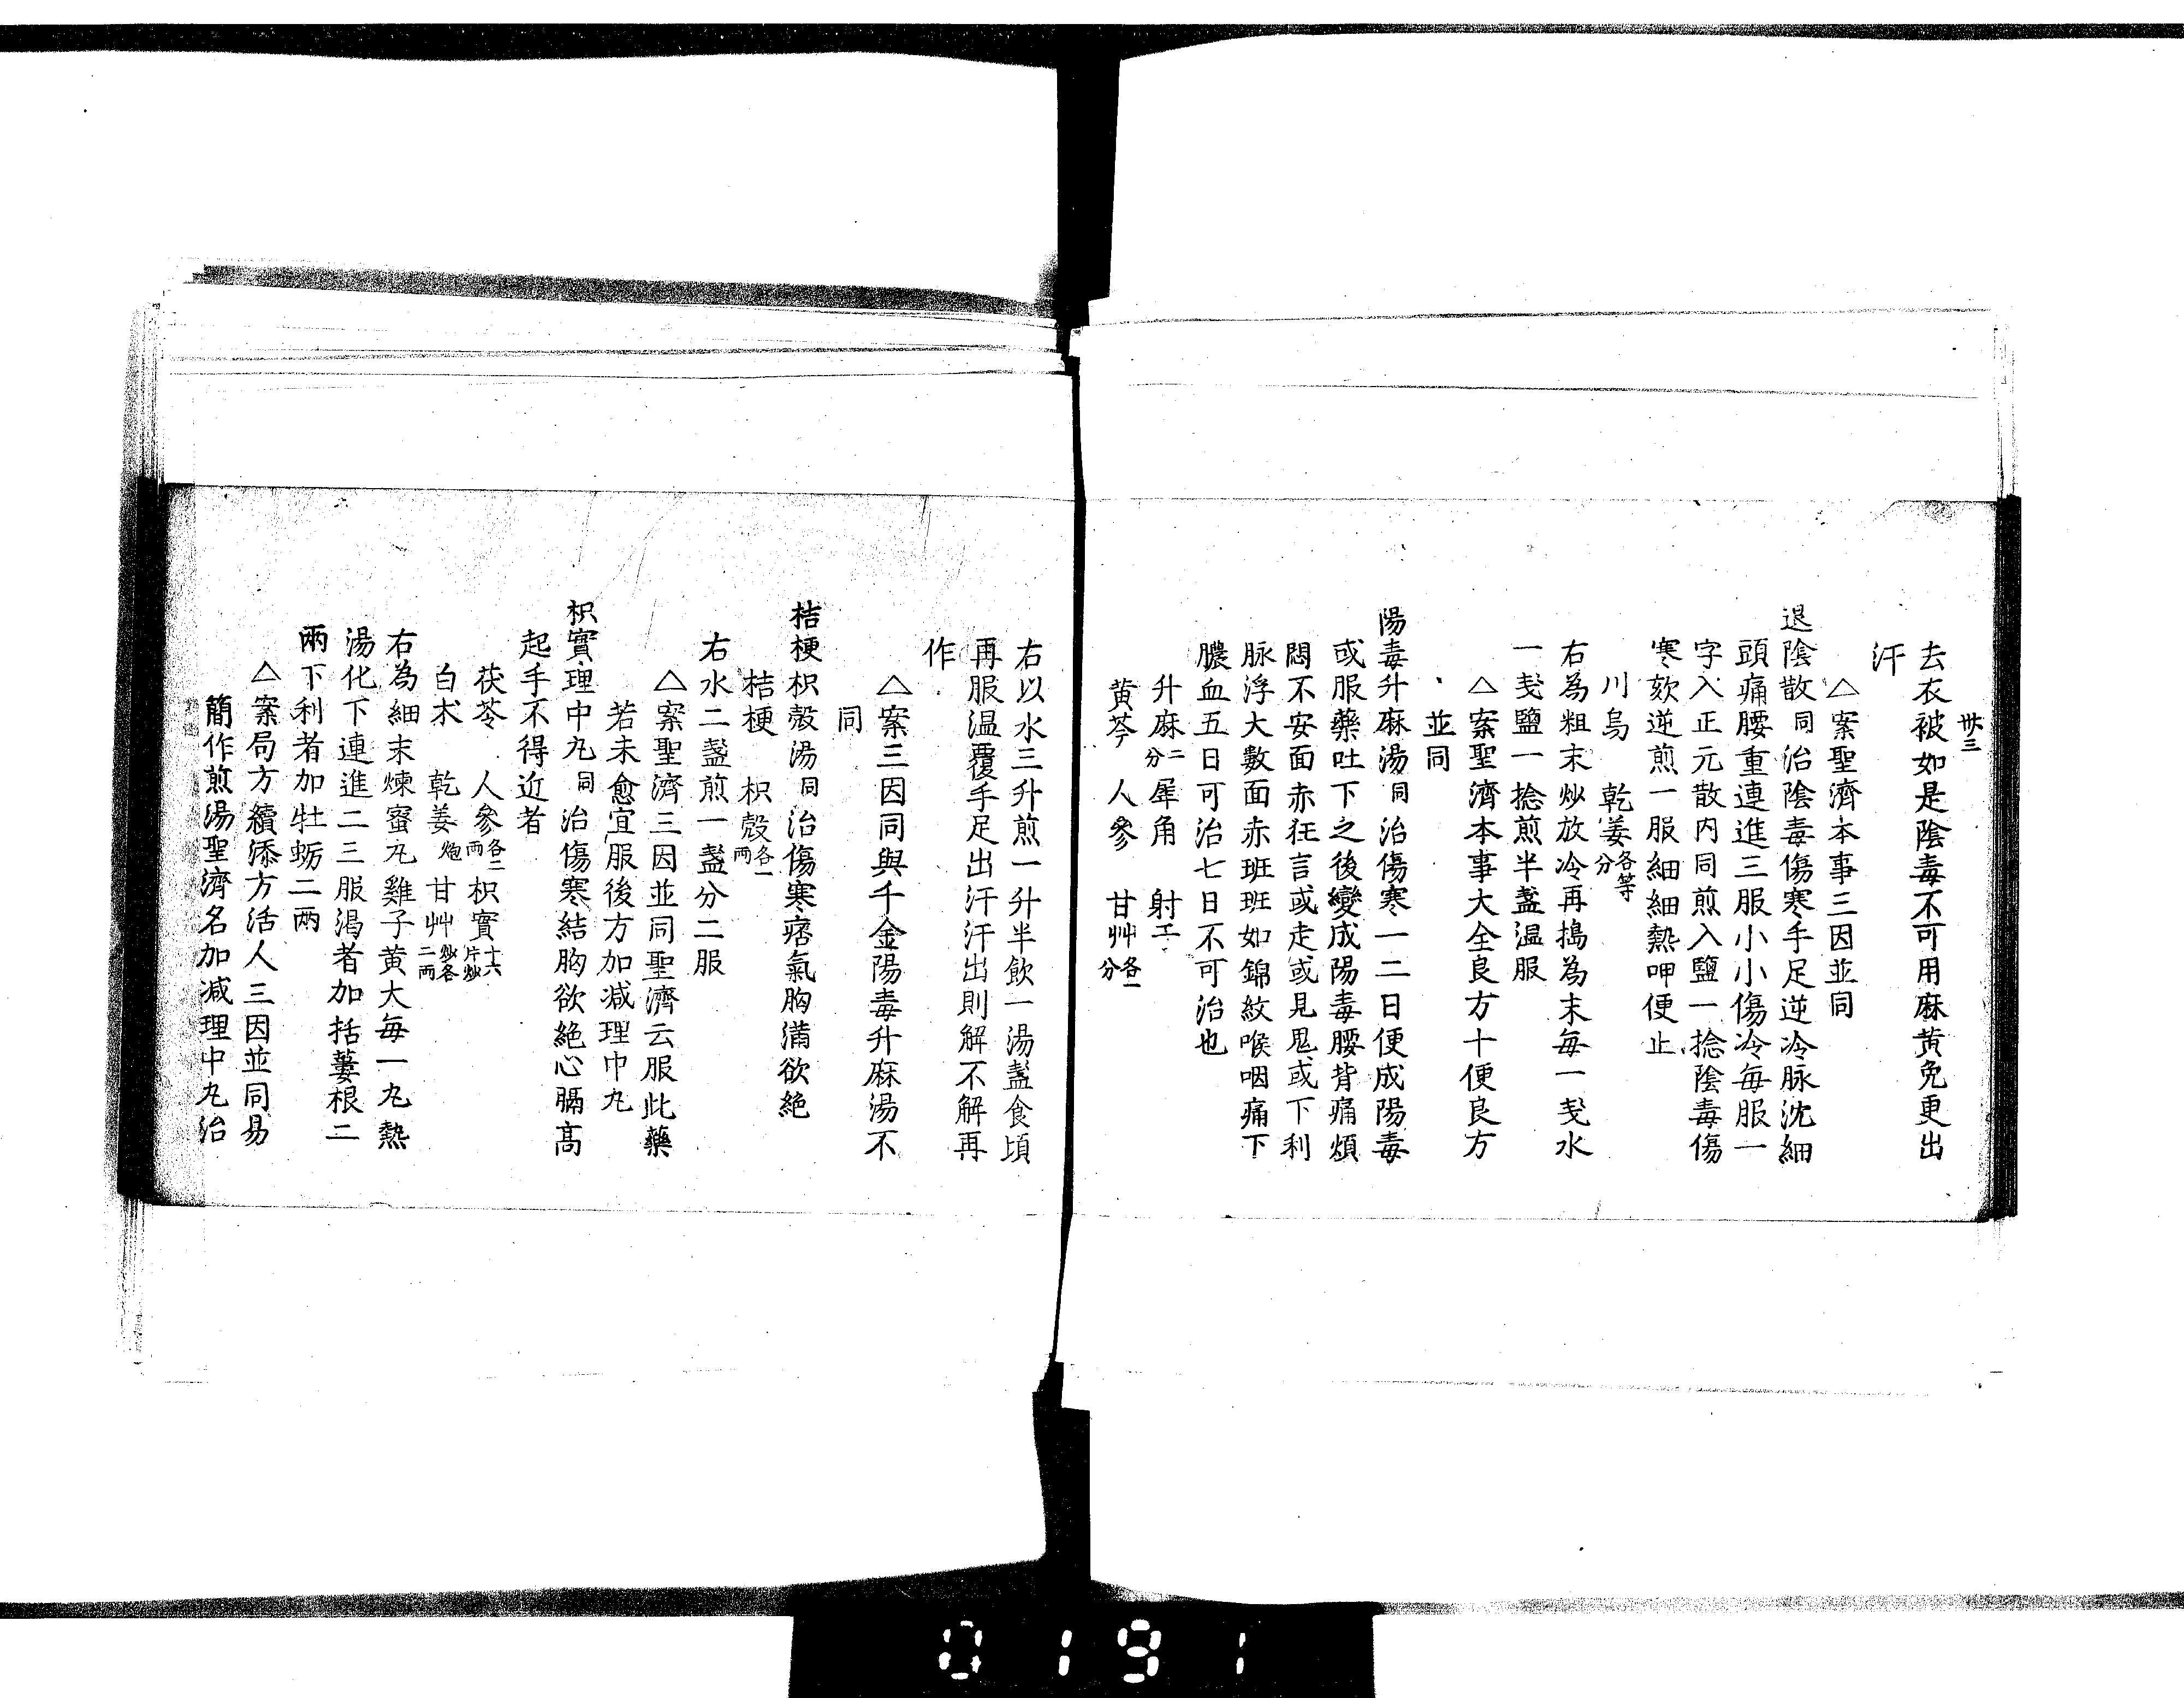 卅三
去衣被如是陰毒不可用麻黄免更出
汗
△案聖濟本事三因並同
退陰散同治陰毒傷寒手足逆冷脉沈細
頭痛腰重連進三服小小傷冷每服一
字入正元散内同煎入鹽一捻陰毒傷
寒欬逆煎一服細細熱呷便止
川烏　乾姜各等分
右為粗末炒放冷再搗為末每一戔水
一戔鹽一捻煎半盞温服
△案聖濟本事大全良方十便良方
並同
陽毒升麻湯同治傷寒一二日便成陽毒
或服藥吐下之後變成陽毒腰背痛煩
悶不安面赤狂言或走或見鬼或下利
脉浮大數面赤班班如錦紋喉咽痛下
膿血五日可治七日不可治也
升麻二分　犀角　射干
黄芩　人參　甘艸各一分
右以水三升煎一升半飲一湯盞食頃
再服温覆手足出汗汗出則解不解再
作
△案三因同與千金陽毒升麻湯不
同
桔梗枳殼湯同治傷寒痞氣胸滿欲絶
桔梗　枳殼各一兩
右水二盞煎一盞分二服
△案聖濟三因並同聖濟云服此藥
若未愈宜服後方加减理中丸
枳實理中丸同治傷寒結胸欲絶心膈高
起手不得近者
茯苓　人參各二兩　枳實十六片炒
白朮　乾姜炮　甘艸炒各二兩
右為細末煉蜜丸雞子黄大每一丸熱
湯化下連進二三服渴者加括蔞根二
兩下利者加牡蛎二兩
△案局方續添方活人三因並同易
簡作煎湯聖濟名加减理中丸治
0191